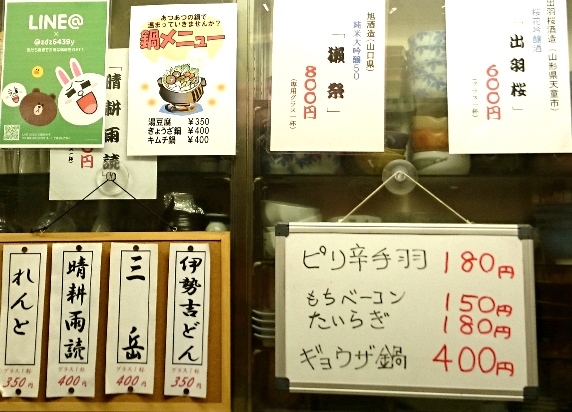 LINE@
@adz5439y
あつあつの鍋で
温まっていきませんか?
鍋メニュー
湯豆腐 ¥350
ぎょうざ鍋 ¥400
キムチ鍋 ¥400
「晴耕雨読」
円
旭酒造(山口県)
純米大吟醸50
「獺祭」
800円
(専用グラス一杯)
出羽桜酒造(山形県天童市)
桜花吟醸酒
「出羽桜」
600円
れんと
グラス1杯
350円
晴耕雨読
グラス1杯
400円
三岳
グラス1杯
400円
伊勢吉どん
グラス1杯
350円
ピリ辛手羽 180円
もちベーコン 150円
たいらぎ 180円
ギョウザ鍋 400円